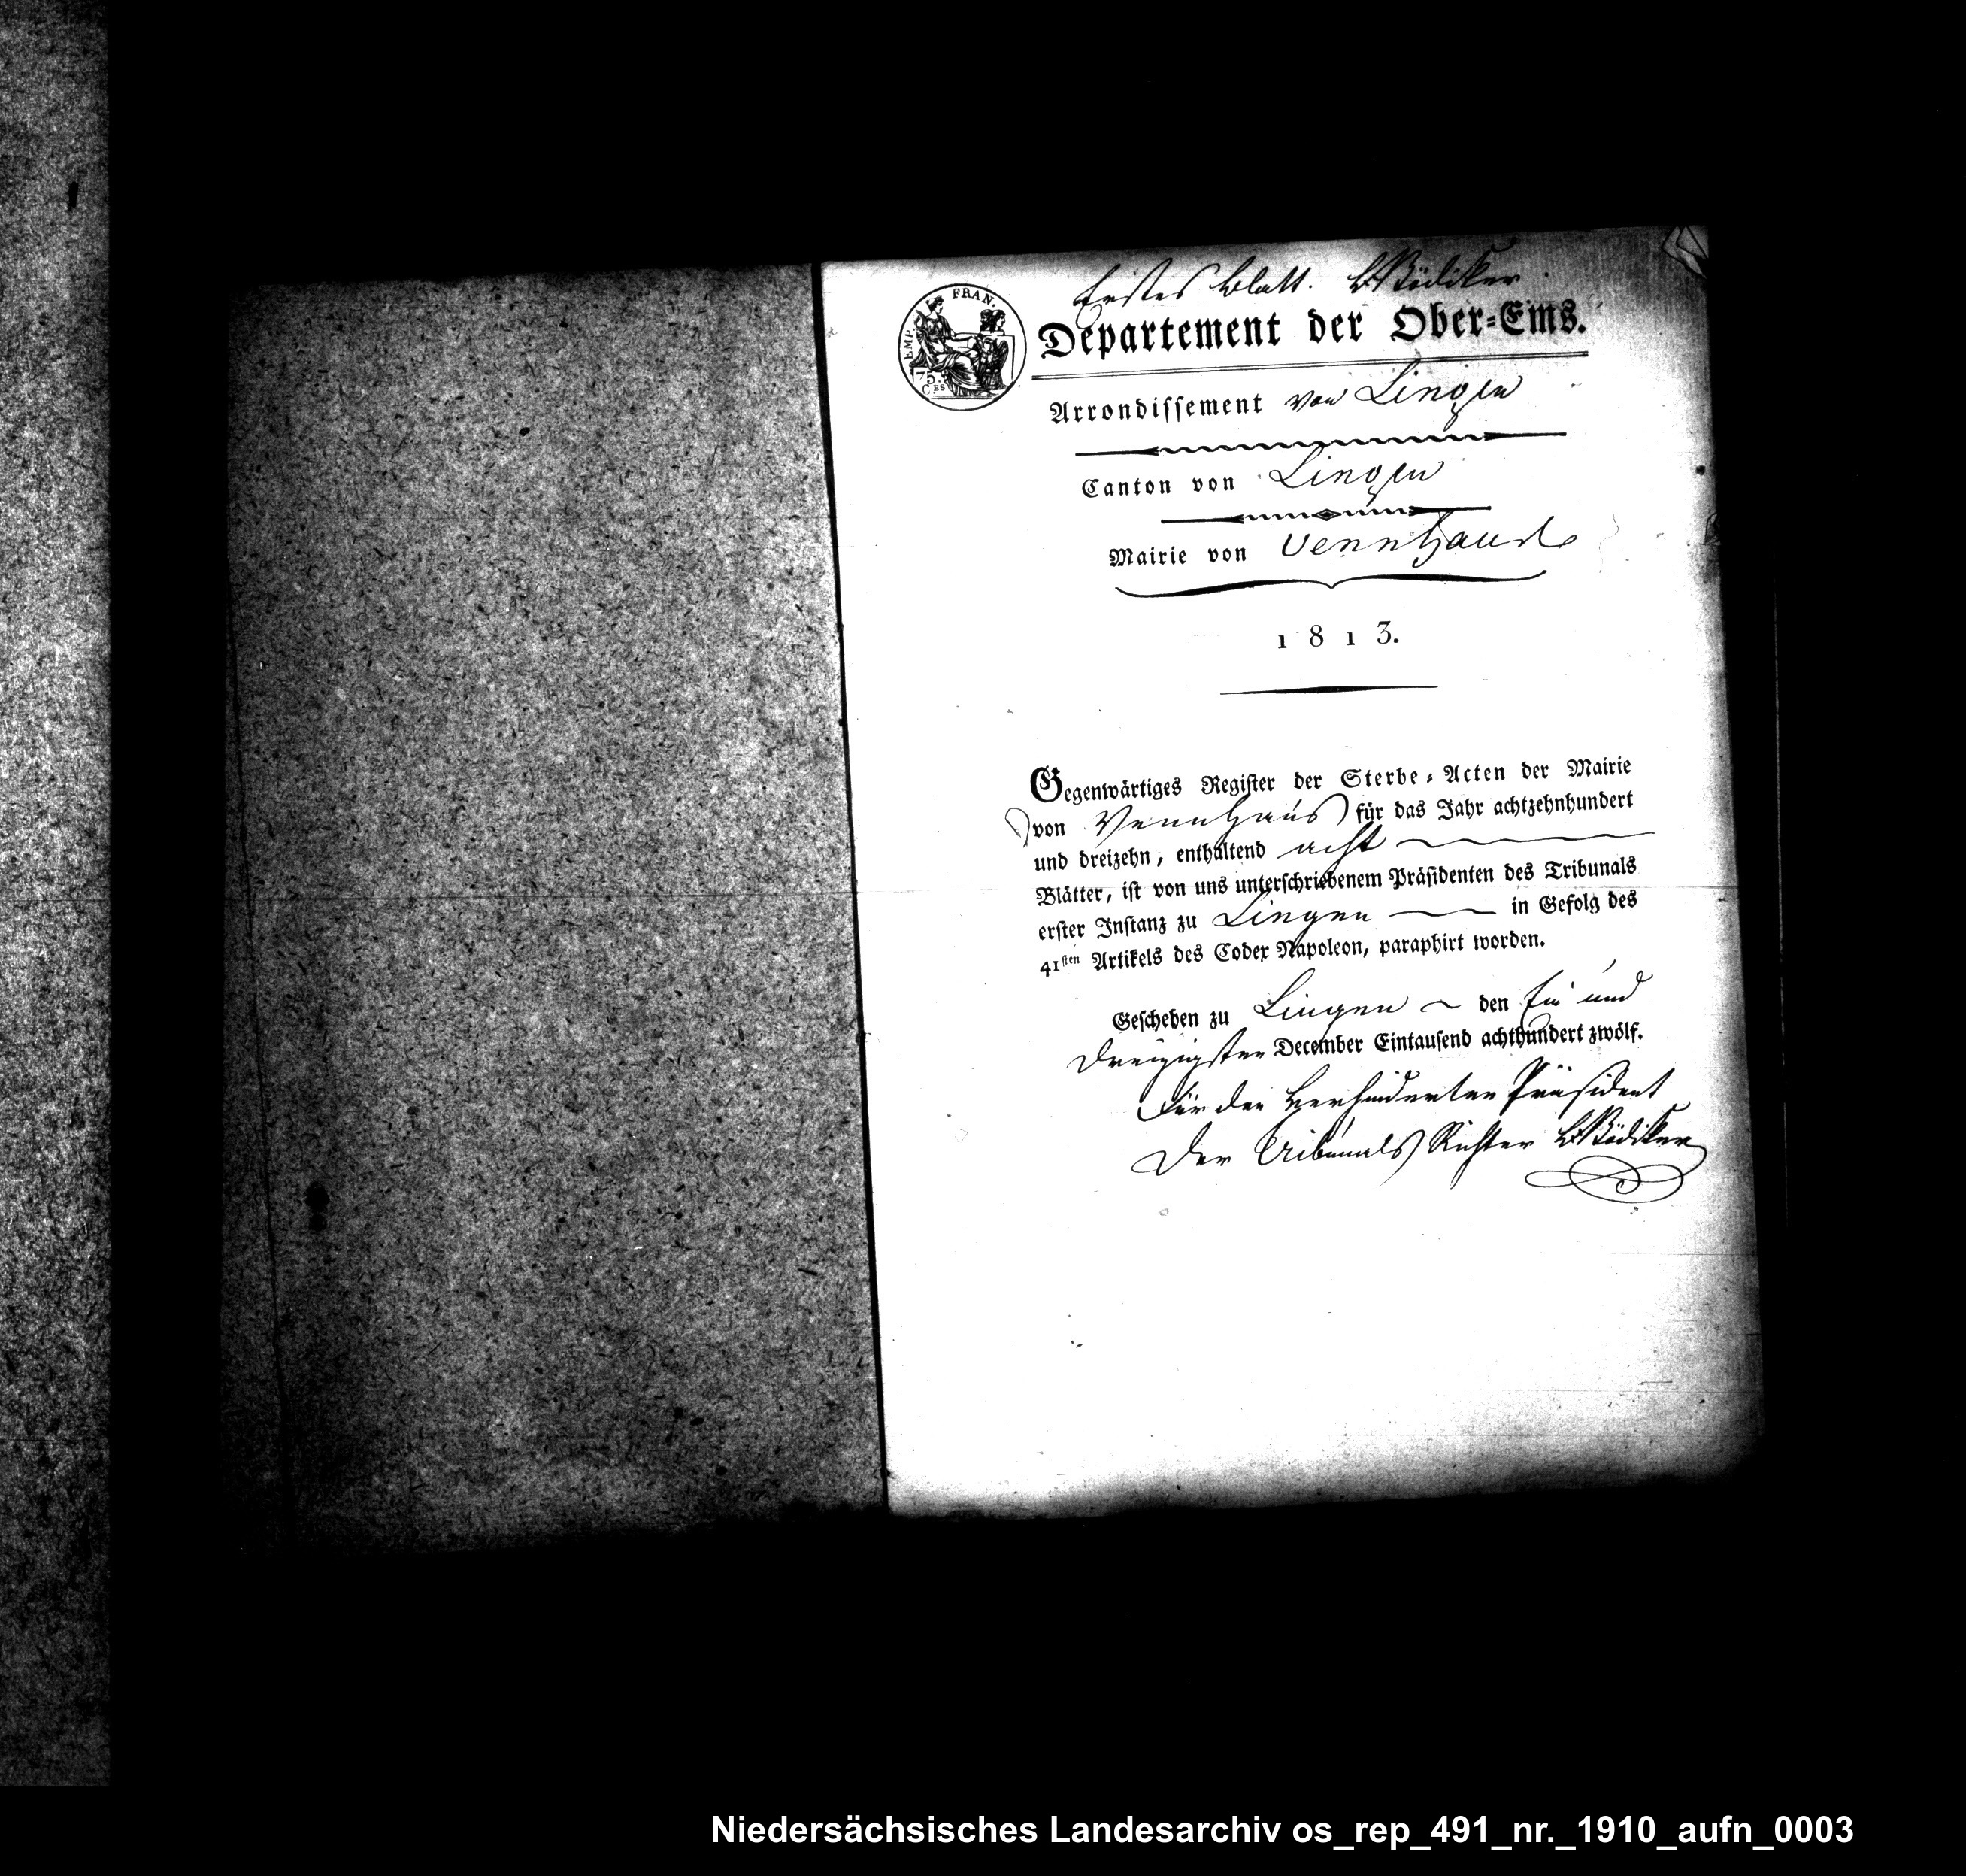 Erstes Blatt. BRödiker
EMP. FRAN.
75.
C.ES
Departement der Ober-Ems.
Arrondissement von Lingen
Canton von Lingen
Mairie von Vennhaus
1813.
Gegenwärtiges Register der Sterbe-Acten der Mairie
von Vennhaus für das Jahr achtzehnhundert
und dreizehn, enthaltend acht
Blätter, ist von uns unterschriebenem Präsidenten des Tribunals
erster Instanz zu Lingen in Gefolg des
41sten Artikels des Codex Napoleon, paraphirt worden.
Geschehen zu Lingen den Ein und
Dreizigsten December Eintausend achthundert zwölf.
Für den Verhinderten Präsident
Der Tribunals Richter BRödiker
Niedersächsisches Landesarchiv os_rep_491_nr._1910_aufn_0003